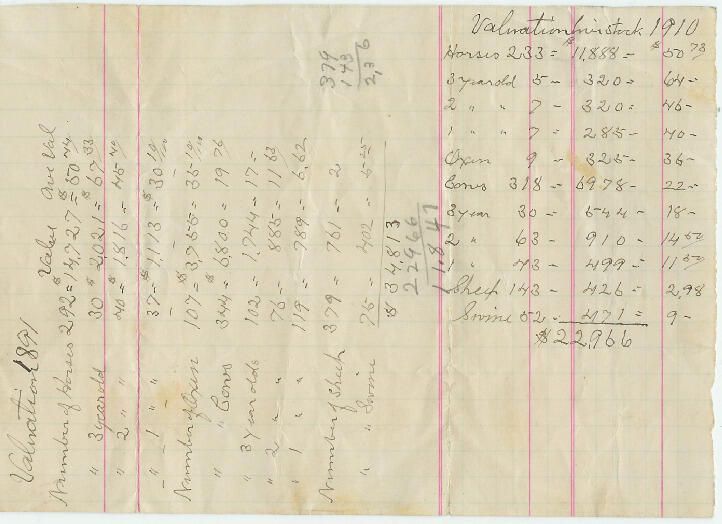 Valuation 1891
Value Ave Val
Number of Horses 292 = $ 4,727 = $50 74
" 3 year old 30 $ 2,021 = $ 67 33
" 2 " " 40 = $ 1,816 = 45 40
" - 1 " " 37 - $ 1,113 = $ 30 10/100
Number of Oxen 107 = $ 3,755 = 35 10/100
" " Cows 344 = $ 6,800 = 19 76
" 3 Year olds 102 = 1,744 = 17 =
" 2 " " 76 = 885 = 11 63
" 1 " " 119 = 789 = 6.62
Number of Sheep 379 = 761 = 2
" " Swine 75 = 402 = 5 25
$ 34,813
22966
11,847
379
143
236
Valuation live stock 1910
Horses 233 = $ 11,888 = $ 50 73
3 year old 5 - 320 = 64 -
2 " " 7 - 320 = 46 -
1 " " 7 = 285 - 40 -
Oxen 9 - 325 - 36 -
Cows 318 = 6978 - 22 =
3 year 30 = 544 = 18 -
2 " 63 = 910 = 14 50
1 " 43 = 499 = 11 50
Sheep 143 = 426 = 2,98
Swine 52 = 471 = 9 -
$22,966